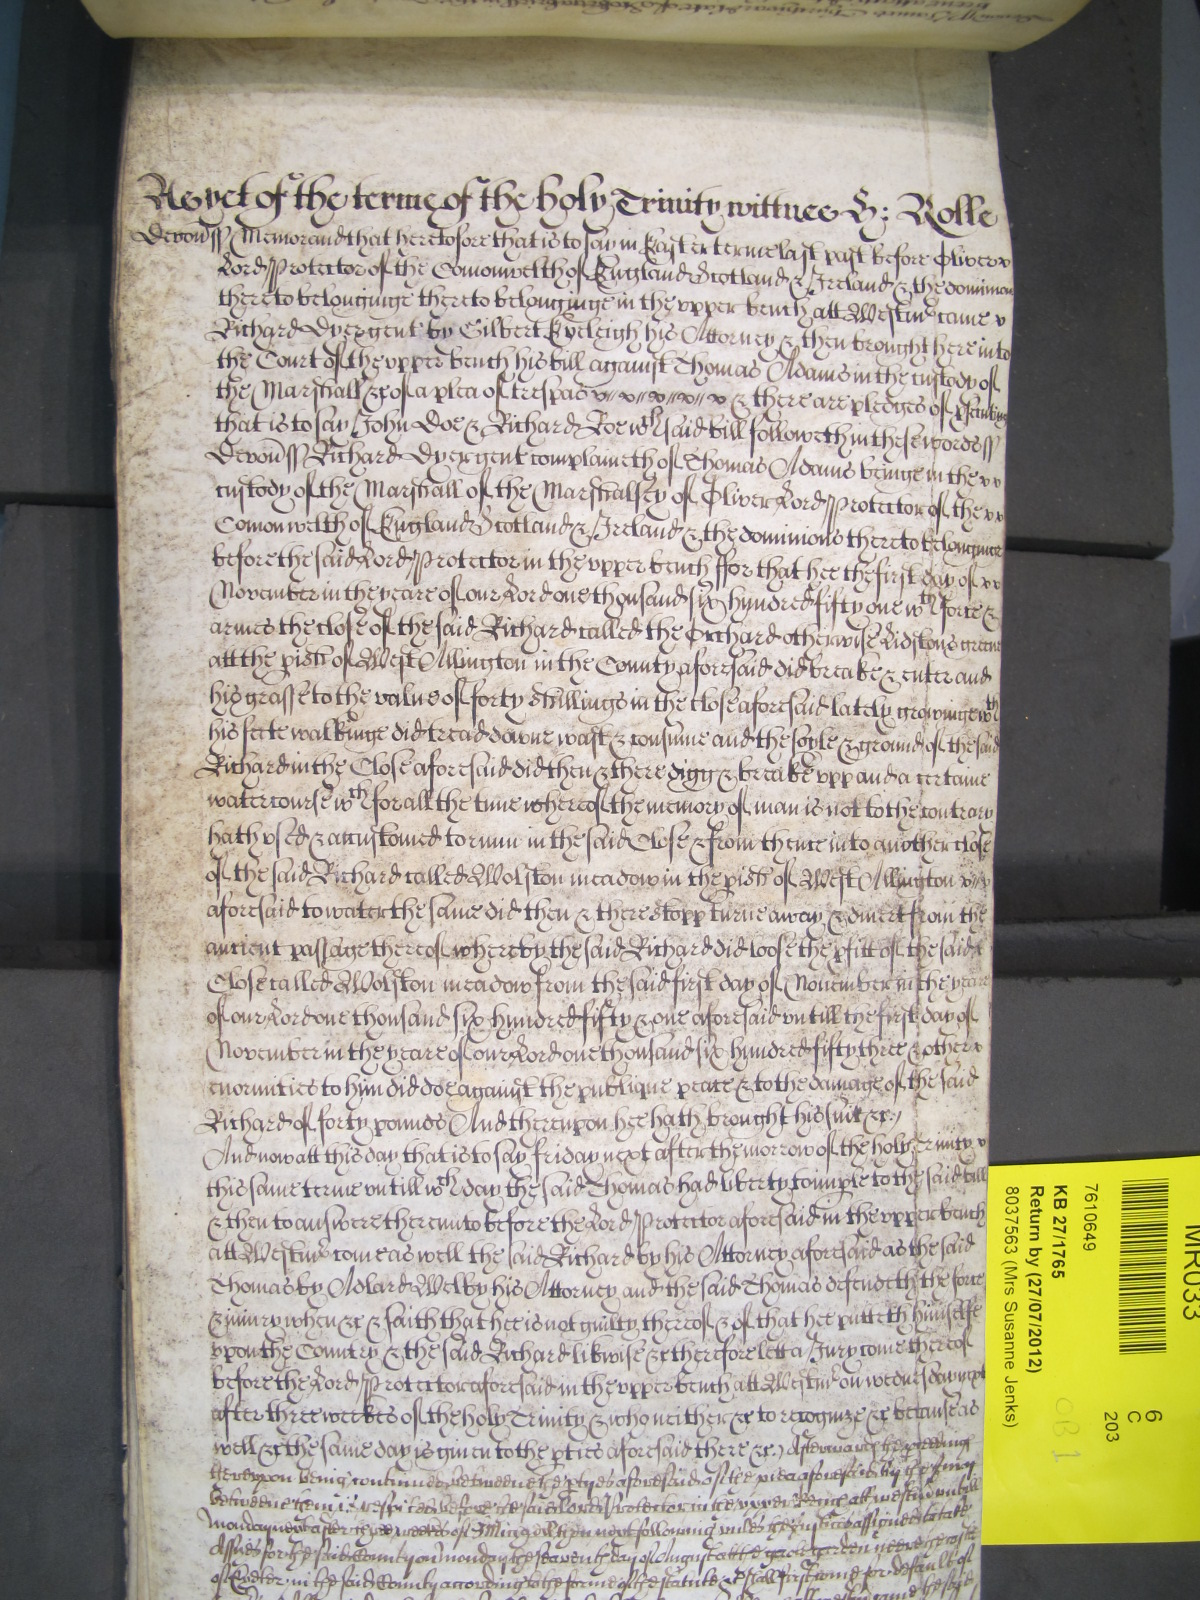 As yet of the terme of the holy Trinity wittnes H: Rolle
Devon ss Memorand that heretofore that is to say in Easter terme last past before Oliver
Lord Protector of the Comonwelth of England Scotland & Ireland & the dominions
thereto belonginge thereto belonginge in the upper bench att Westmr came
Richard Dyer gent by Gilbert Eveleigh his Attorney & then brought here into
the Court of the upper bench his bill against Thomas Adams in the custody of
the Marshall &c of a plea of trespas & there are pledges of
that is to say John Doe & Richard Roe wch said bill followeth in these wordes ss
Devon ss Richard Dyer gent complaineth of Thomas Adams beinge in the
custody of the Marshall of the Marshallsey of Oliver Lord Protector of the
Comonwelth of England Scotland & Ireland & the dominions thereto belonginge
before the said Lord Protector in the upper bench ffor that hee the first day of
November in the yeare of our Lord one thousand six hundred fifty one wth force &
armes the close of the said Richard called the Orchard otherwise greene
att the pish of West Allington in the County aforesaid did breake & enter and
his grasse to the value of forty shillings in the close aforesaid lately growinge wth
his feete walkinge did tread downe wast & consume and the soyle & ground of the said
Richard in the Close aforesaid did then & there digg & breake upp and a certaine
watercourse wch for all the time whereof the memory of man is not to the contrary
hath used & accustomed to runn in the said Close & from thence into another close
of the said Richard called Wolston meadow in the pish of West Allington
aforesaid to water the same did then & there stopp turne away & divert from the
antient passage thereof whereby the said Richard did loose the pfitt of the said
Close called Wolston meadow from the said first day of November in the yeare
of our Lord one thousand six hundred fifty & one aforesaid untill the first day of
November in the yeare of our Lord one thousand six hundred fifty three & other
enormities to him did doe against the publique peace & to the damage of the said
Richard of forty pounds And thereupon hee hath brought his suit &c
And now att this day that is to say friday next after the morrow of the holy Trinity
this same terme untill wch day the said Thomas had liberty to imple to the said bill
& then to answere thereunto before the Lord Protector aforesaid in the upper bench
att Westmr come as well the said Richard by his Attorney aforesaid as the said
Thomas by Adlard Welby his Attorney and the said Thomas defendeth the force
& iniury when &c & saith that hee is not guilty thereof & of that hee putteth himselfe
upon the Country & the said Richard likwise &c therefore lett a Jury come thereof
before the Lord Protector aforesaid in the upper bench att Westmr on wednesday next
after three weekes of the holy Trinity & who neither &c to recognize &c because as
well &c the same day is given to the pties aforesaid there &c Afterwards the
thereupon being continued betweene the ptyes aforesaid of the plea aforesaid by the Jury
betweene them is respited before the said Lord Protector in the upper bench att Westmr untill
monday next after three weekes of St Michael then next following unles the Justices assigned to take
Assises for the said County on monday the seaventh day of August att the neere the castle
of Exeter in the said County according to the forme of the statute &c shall first come for default of
MR033
6
C
203
7610649
KB 27/1765
Return by (27/07/2012)
8037563 (Mrs Susanne Jenks)
OB 1